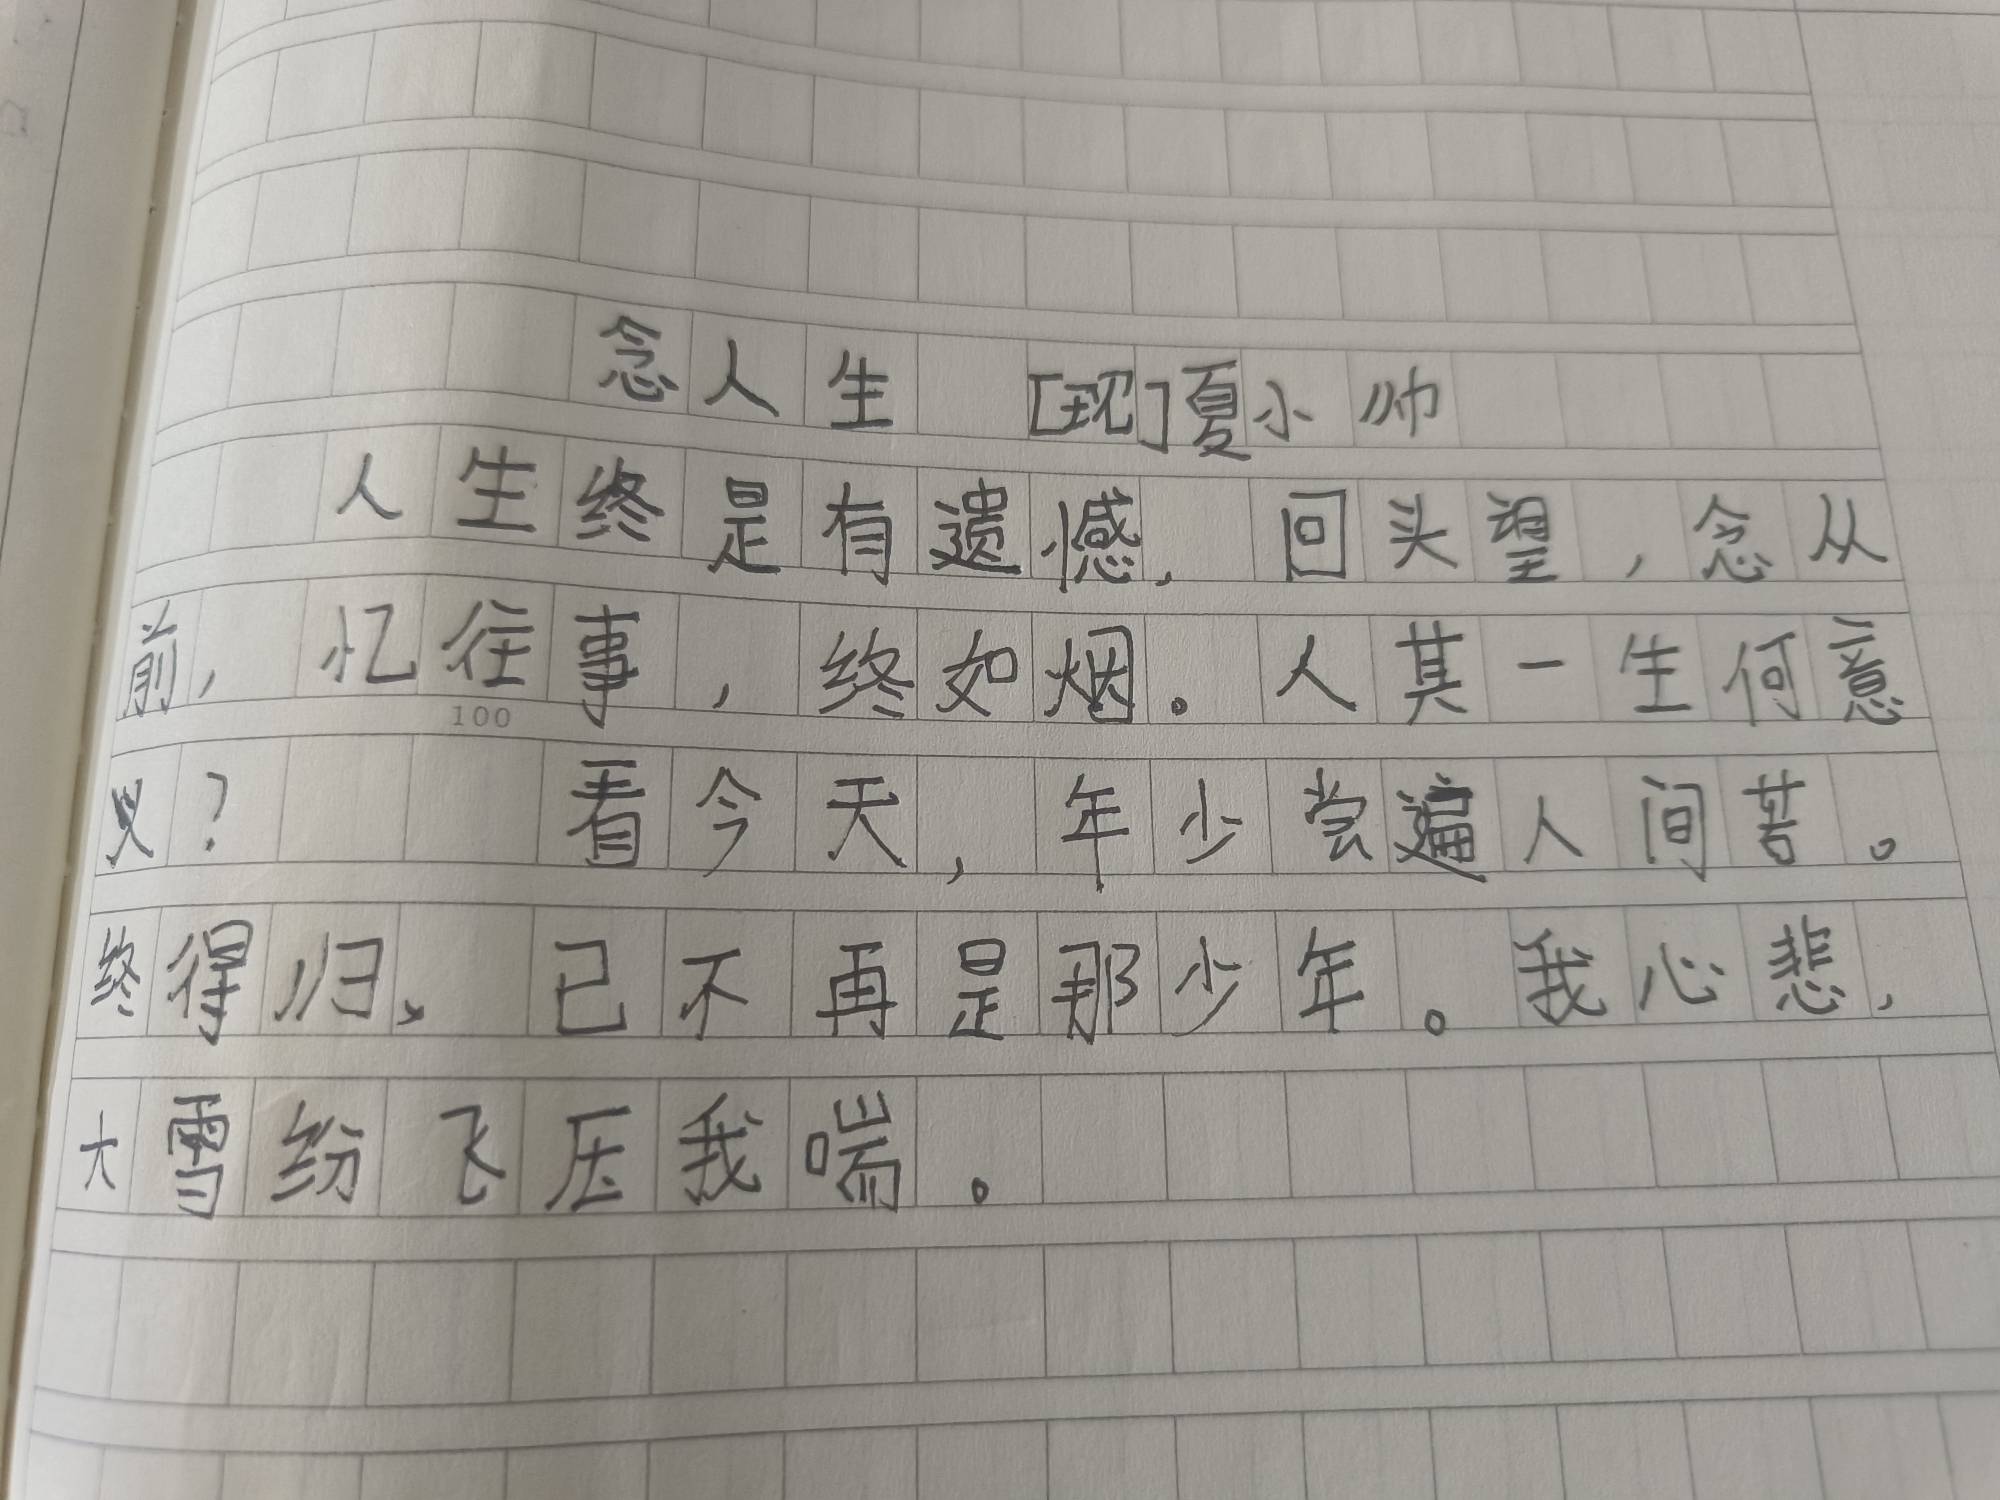 念人生 [现]夏小帅
人生终是有遗憾，回头望，念从
前，忆往事，终如烟。人其一生何意
100
义？ 看今天，年少尝遍人间苦。
终得归、 己不再是那少年。我心悲，
大雪纷飞压我喘。